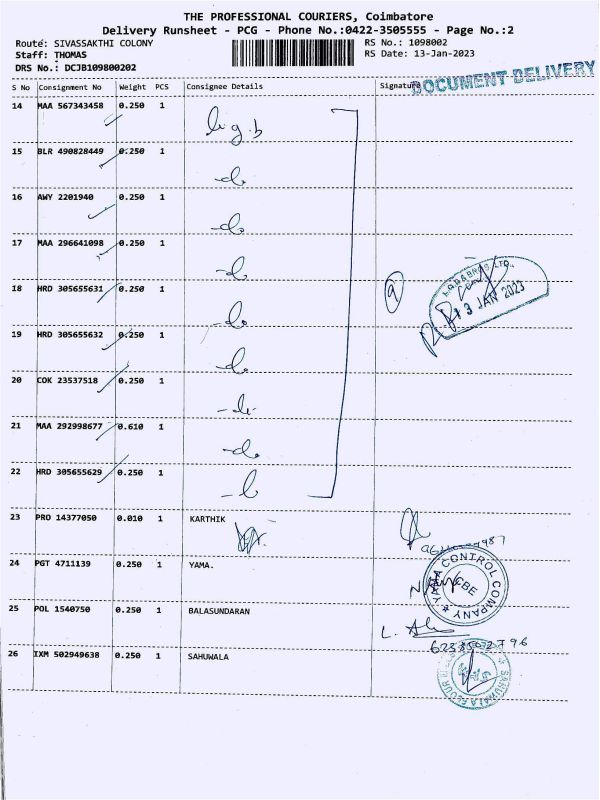 THE PROFESSIONAL COURIERS, Coimbatore
Delivery Runsheet - PCG - Phone No.:0422-3505555 - Page No.:2
Route: SIVASSAKTHI COLONY RS No.: 1098002
Staff: THOMAS RS Date: 13-Jan-2023
DRS No.: DCJB109800202
DOCUMENT DELIVERY
S No Consignment No Weight PCS Consignee Details Signature
14 MAA 567343458 0.250 1
15 BLR 490828449 0.250 1 -do
16 AWY 2201940 0.250 1 -do
17 MAA 296641098 0.250 1 -do
18 HRD 305655631 0.250 1 -do
19 HRD 305655632 0.250 1 do
20 COK 23537518 0.250 1 -do-
21 MAA 292998677 0.610 1 -do
22 HRD 305655629 0.250 1
9
13 JAN 2023
23 PRO 14377050 0.010 1 KARTHIK
24 PGT 4711139 0.250 1 YAMA.
YAMA CONTROL COMPANY
CBE
25 POL 1540750 0.250 1 BALASUNDARAN
26 IXM 502949638 0.250 1 SAHUWALA
SAHUWALA FLOUR